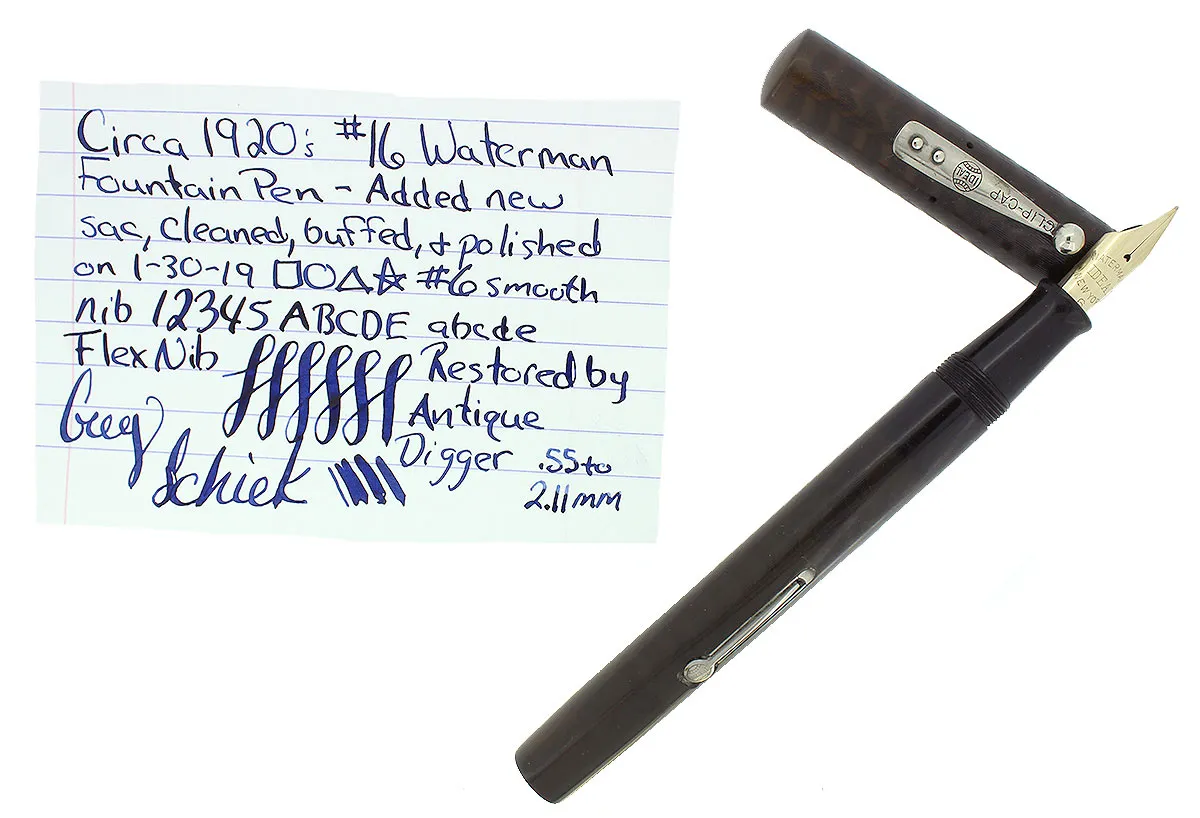 Circa 1920's #16 Waterman
Fountain Pen - Added new
sac, cleaned, buffed, & polished
on 1-30-19 □○△☆ #6 smooth
nib 12345 ABCDE abcde
Flex Nib Restored by
Greg Antique
Schiek Digger .55 to
2.11mm
IDEAL
CLIP-CAP
WATERMAN
IDEAL
NEW YORK
6